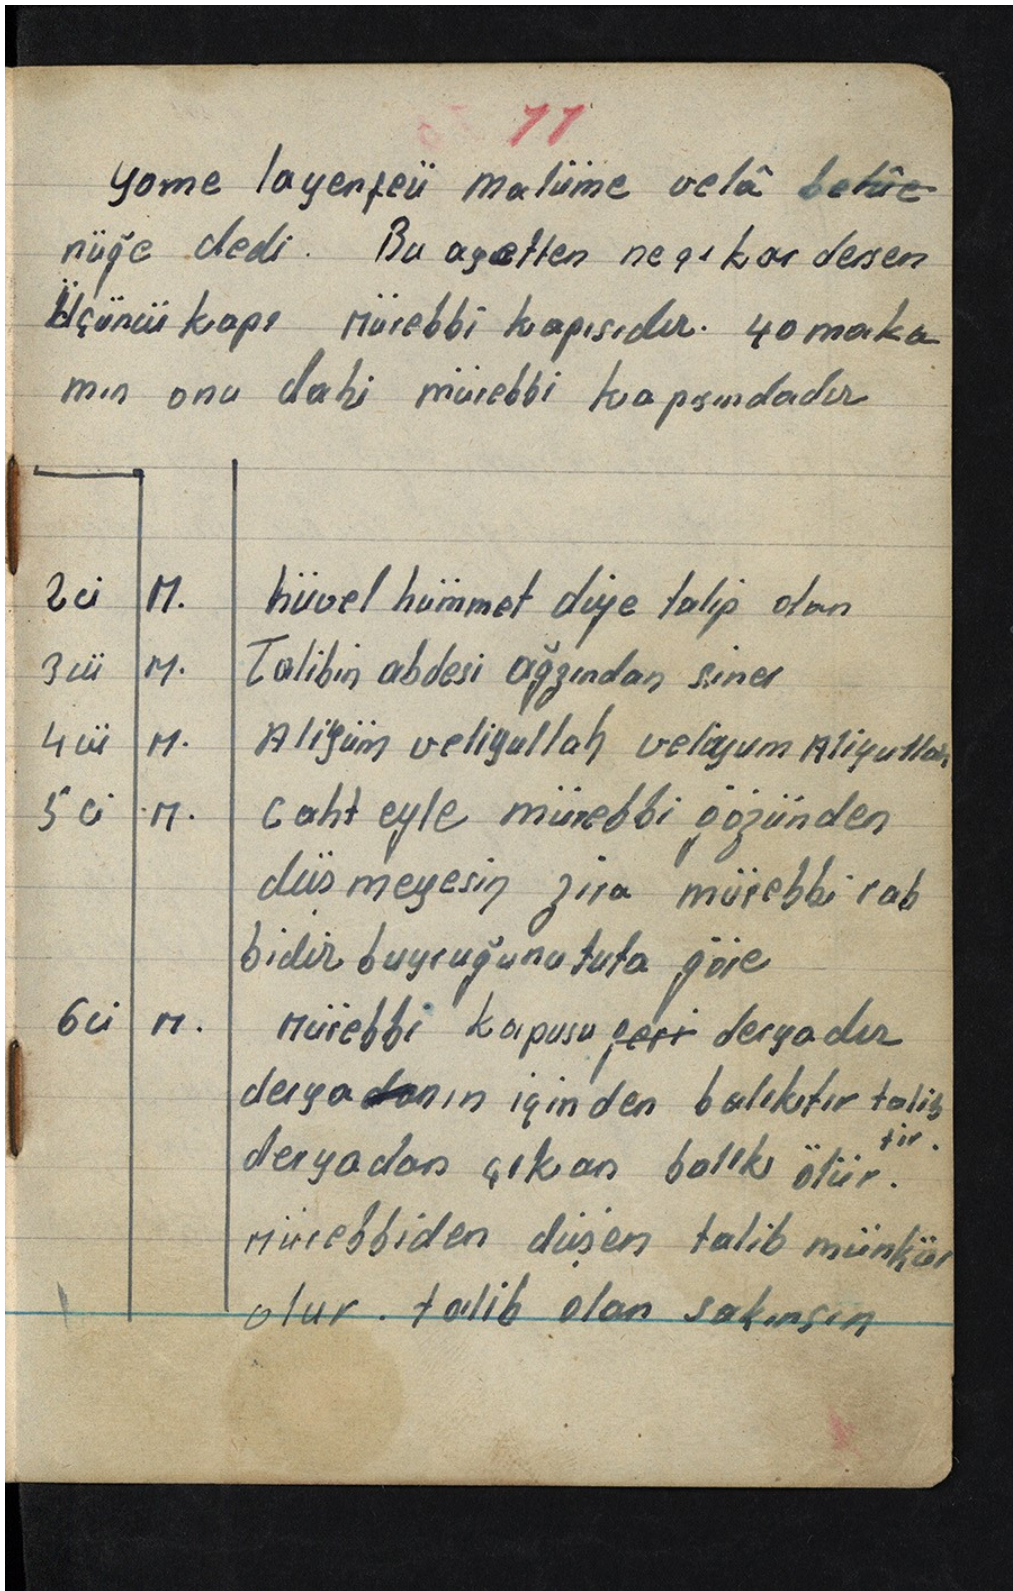 11
yome layenfeü malüme velâ betûe
nüğe dedi. Bu ayetten ne çıkar dersen
Üçüncü kapı Mürebbî kapısıdır. 40 maka
mın onu dahi mürebbi kapısındadır
2ci M. hüvel hümmet diye talip olan
3cü M. Talibin abdesi ağzından siner
4cü M. Aliyüm veliyullah velâyum Aliyullah
5ci M. Caht eyle mürebbi gözünden
düşmeyesin zira mürebbi rab
bidir buyruğunu tuta göre
6cı M. Mürebbi kapusu deryadır
deryanın içinden balıktır talib
tir.
deryadan çıkan balık ölür.
Mürebbiden düşen talib münkür
olur. talib olan sakınsın